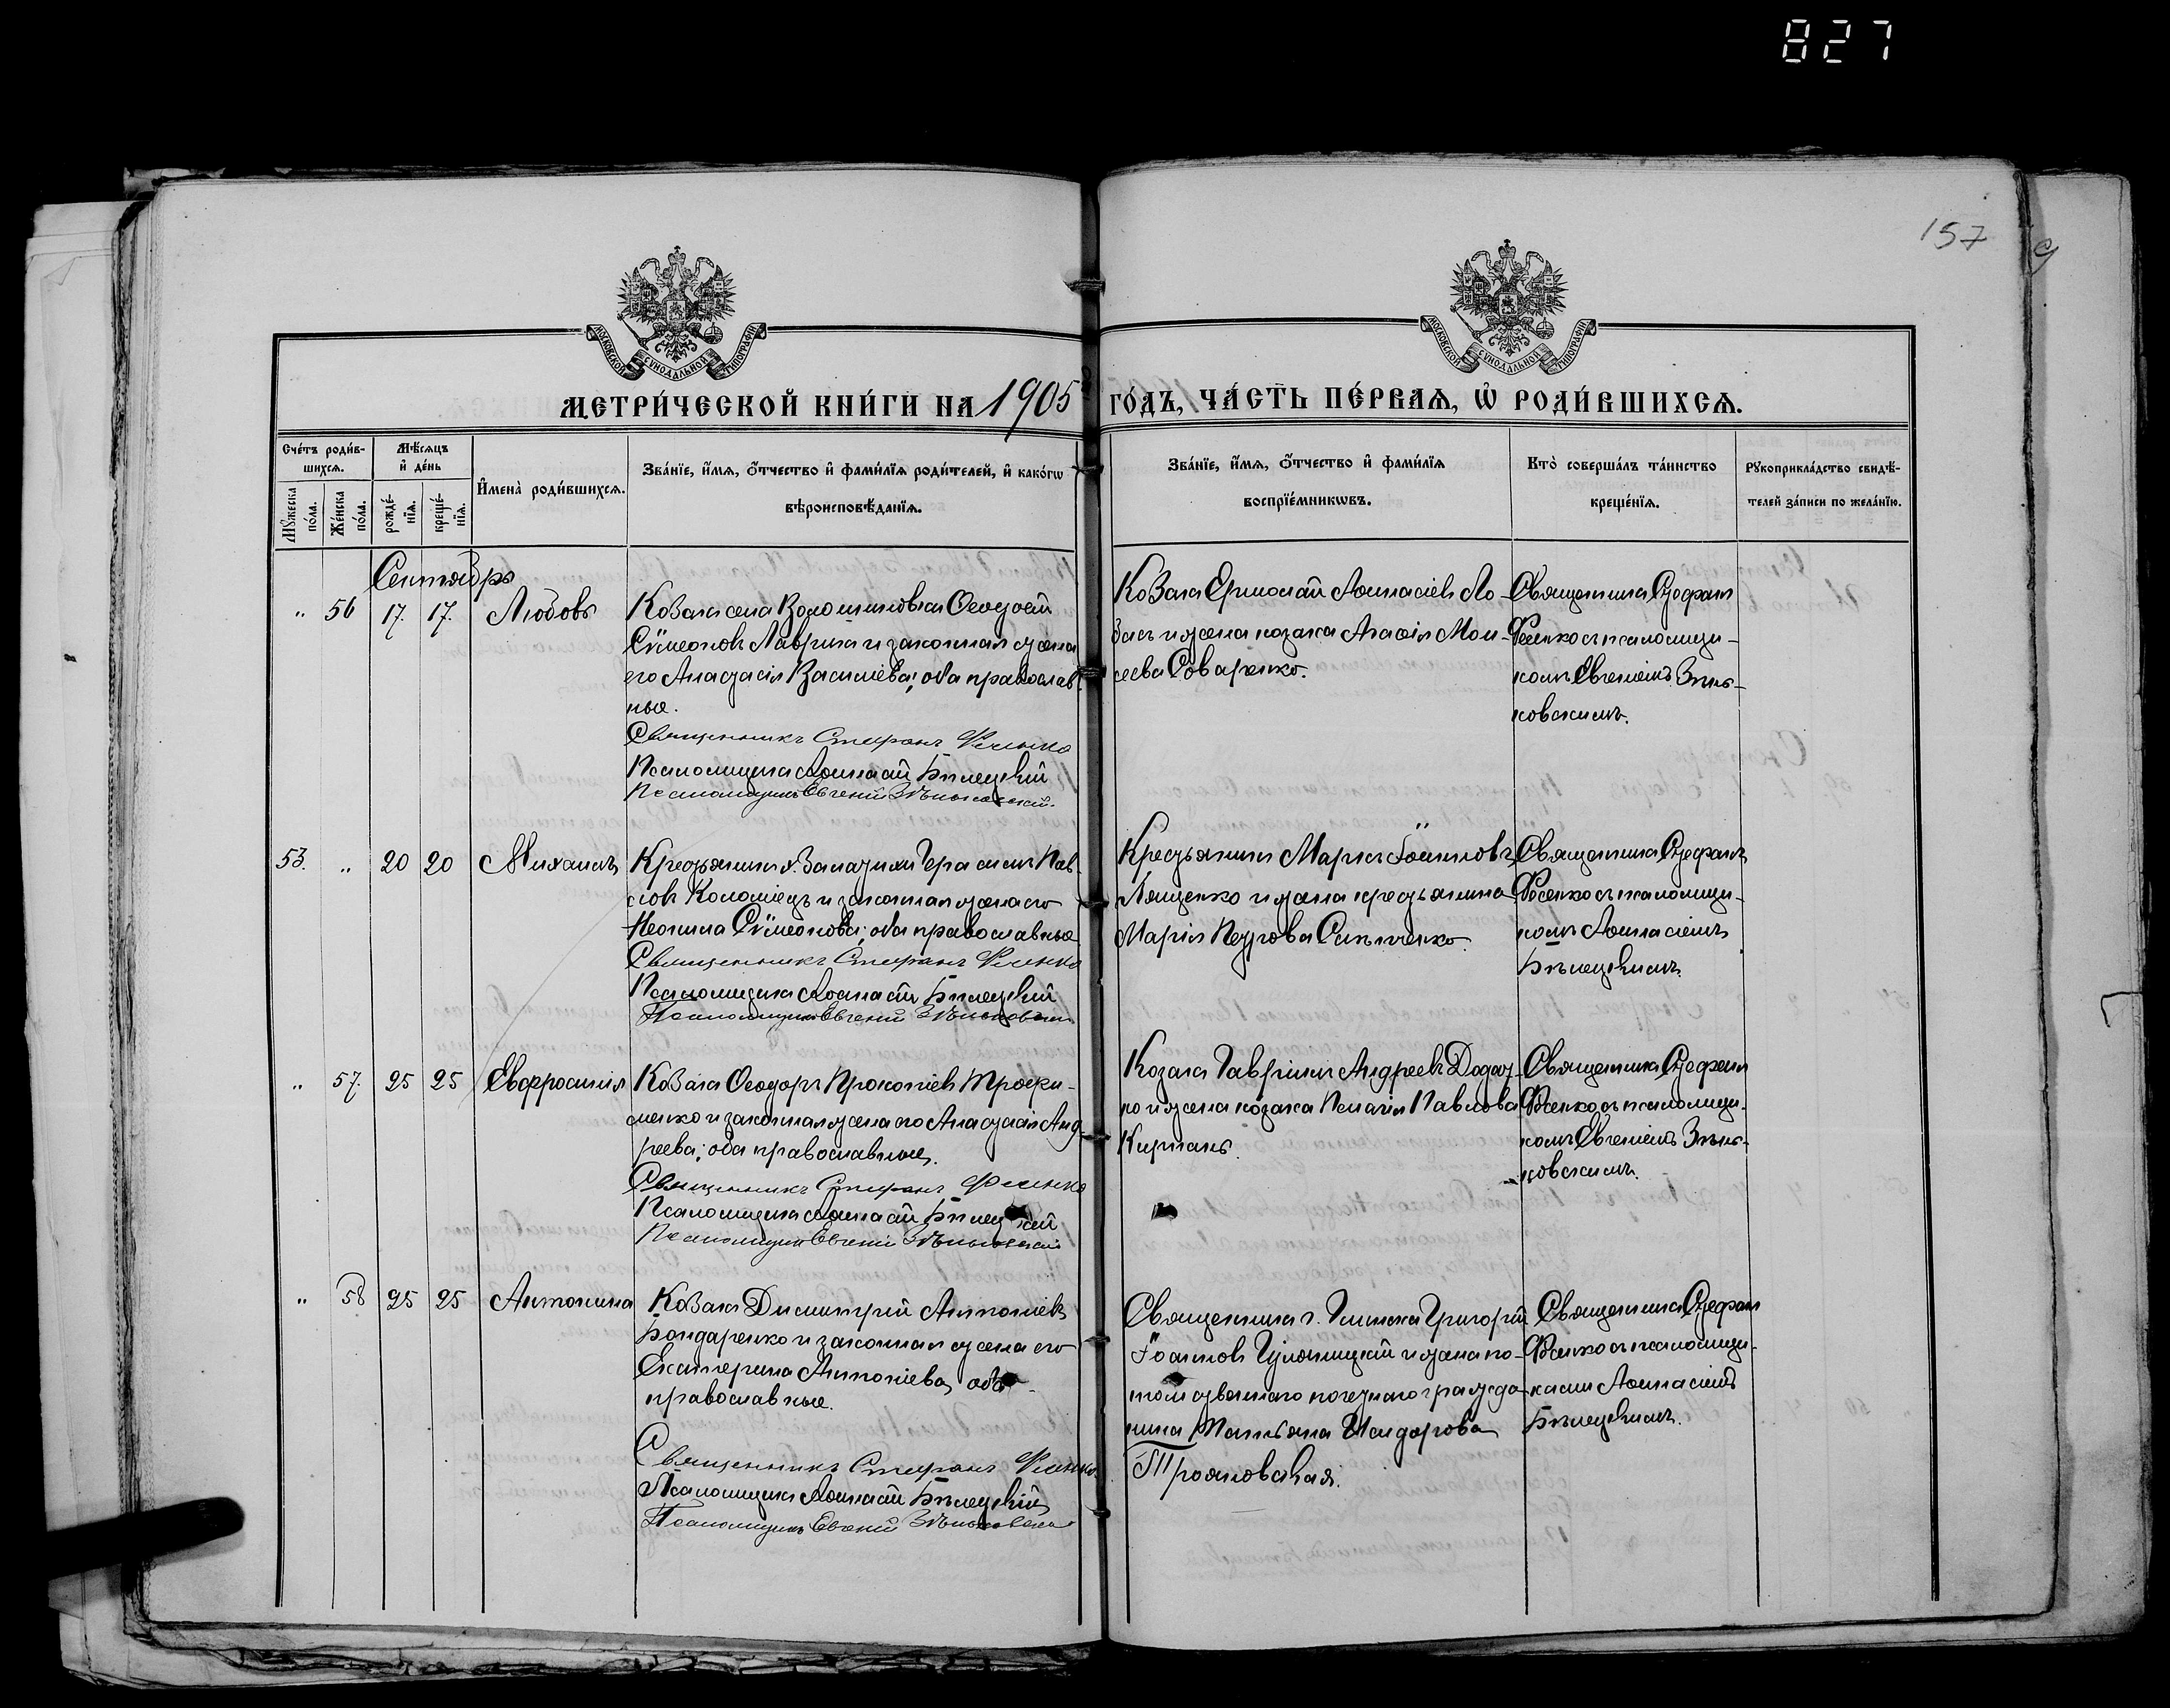 827
157
МОСКОВСКОЙ СУНОДАЛЬНОЙ ТИПОГРАФІИ
МОСКОВСКОЙ СУНОДАЛЬНОЙ ТИПОГРАФІИ
МЕТРИ́ЧЕСКОЙ КНИ́ГИ НА 1905 ГО́ДЪ, ЧА́СТЬ ПЕ́РВАѦ, Ѽ РОДИ́ВШИХСѦ.
Сче́тъ роди́в-
шихсѧ.
Мꙋ́жеска
по́ла.
Же́нска
по́ла.
Мѣ́сѧцъ
и҆ де́нь
рожде́-
нїѧ.
креще́-
нїѧ.
И҆мена̀ роди́вшихсѧ.
Зва́нїе, и҆́мѧ, ѻ҆́тчество и҆ фами́лїѧ роди́телей, и҆ како́гѡ
вѣроисповѣ́данїѧ.
Зва́нїе, и҆́мѧ, ѻ҆́тчество и҆ фами́лїѧ
воспрїе́мникѡвъ.
Кто̀ соверша́лъ та́инство
креще́нїѧ.
Рꙋкоприкла́дство свидѣ́-
телей за́писи по жела́нїю.
Сентябрь
" 56 17. 17. Любовь
Козака села Феодосій
Сѵмеоновъ Лаврика и законная жена
его Анастасія Василіева; оба православ-
ные.
Священникъ Стефанъ Фесенко
Псаломщикъ Аѳанасій Бѣлецкій
Псаломщикъ Евгеній Зѣньковскій.
Козака Ермолай Аѳанасіевъ Ло-
зась и жена козака Агаѳія Мои-
сеева Соваренко.
Священника Стефанъ
Фесенко съ псаломщи-
комъ Евгеніемъ Зѣнь-
ковскимъ.
53. " 20 20 Михаилъ
Крестьянинъ х. Герасимъ Пав-
ловъ Коломіецъ и законная жена его
Неонила Сѵмеонова; оба православные
Священникъ Стефанъ Фесенко
Псаломщикъ Аѳанасій Бѣлецкій
Псаломщикъ Евгеній Зѣньковскій
Крестьянинъ Маркъ Іоанновъ
Лященко и жена крестьянина
Марія Петрова
Священника Стефанъ
Фесенко съ псаломщи-
комъ Аѳанасіемъ
Бѣлецкимъ.
" 57. 25 25 Евфросинія
Козака Ѳеодоръ Прокопіевъ Трофи-
менко и законная жена его Анастасія Анд-
реева; оба православные.
Священникъ Стефанъ Фесенко
Псаломщикъ Аѳанасій Бѣлецкій
Псаломщикъ Евгеній Зѣньковскій
Козака Гавріилъ Андреевъ
и жена козака Пелагія Павлова
Священника Стефанъ
Фесенко съ псаломщи-
комъ Евгеніемъ Зѣнь-
ковскимъ.
" 58 25 25 Антонина
Козака Димитрій Антоніевъ
Бондаренко и законная жена его
Екатерина Антоніева, оба
православные.
Священникъ Стефанъ Фесенко
Псаломщикъ Аѳанасій Бѣлецкій
Псаломщикъ Евгеній Зѣньковскій
Священника г. Глинска Григорій
Іоанновъ и жена по-
томственнаго почетнаго гражда-
нина Татьяна
Трояновская.
Священника Стефанъ
Фесенко съ псаломщи-
комъ Аѳанасіемъ
Бѣлецкимъ.